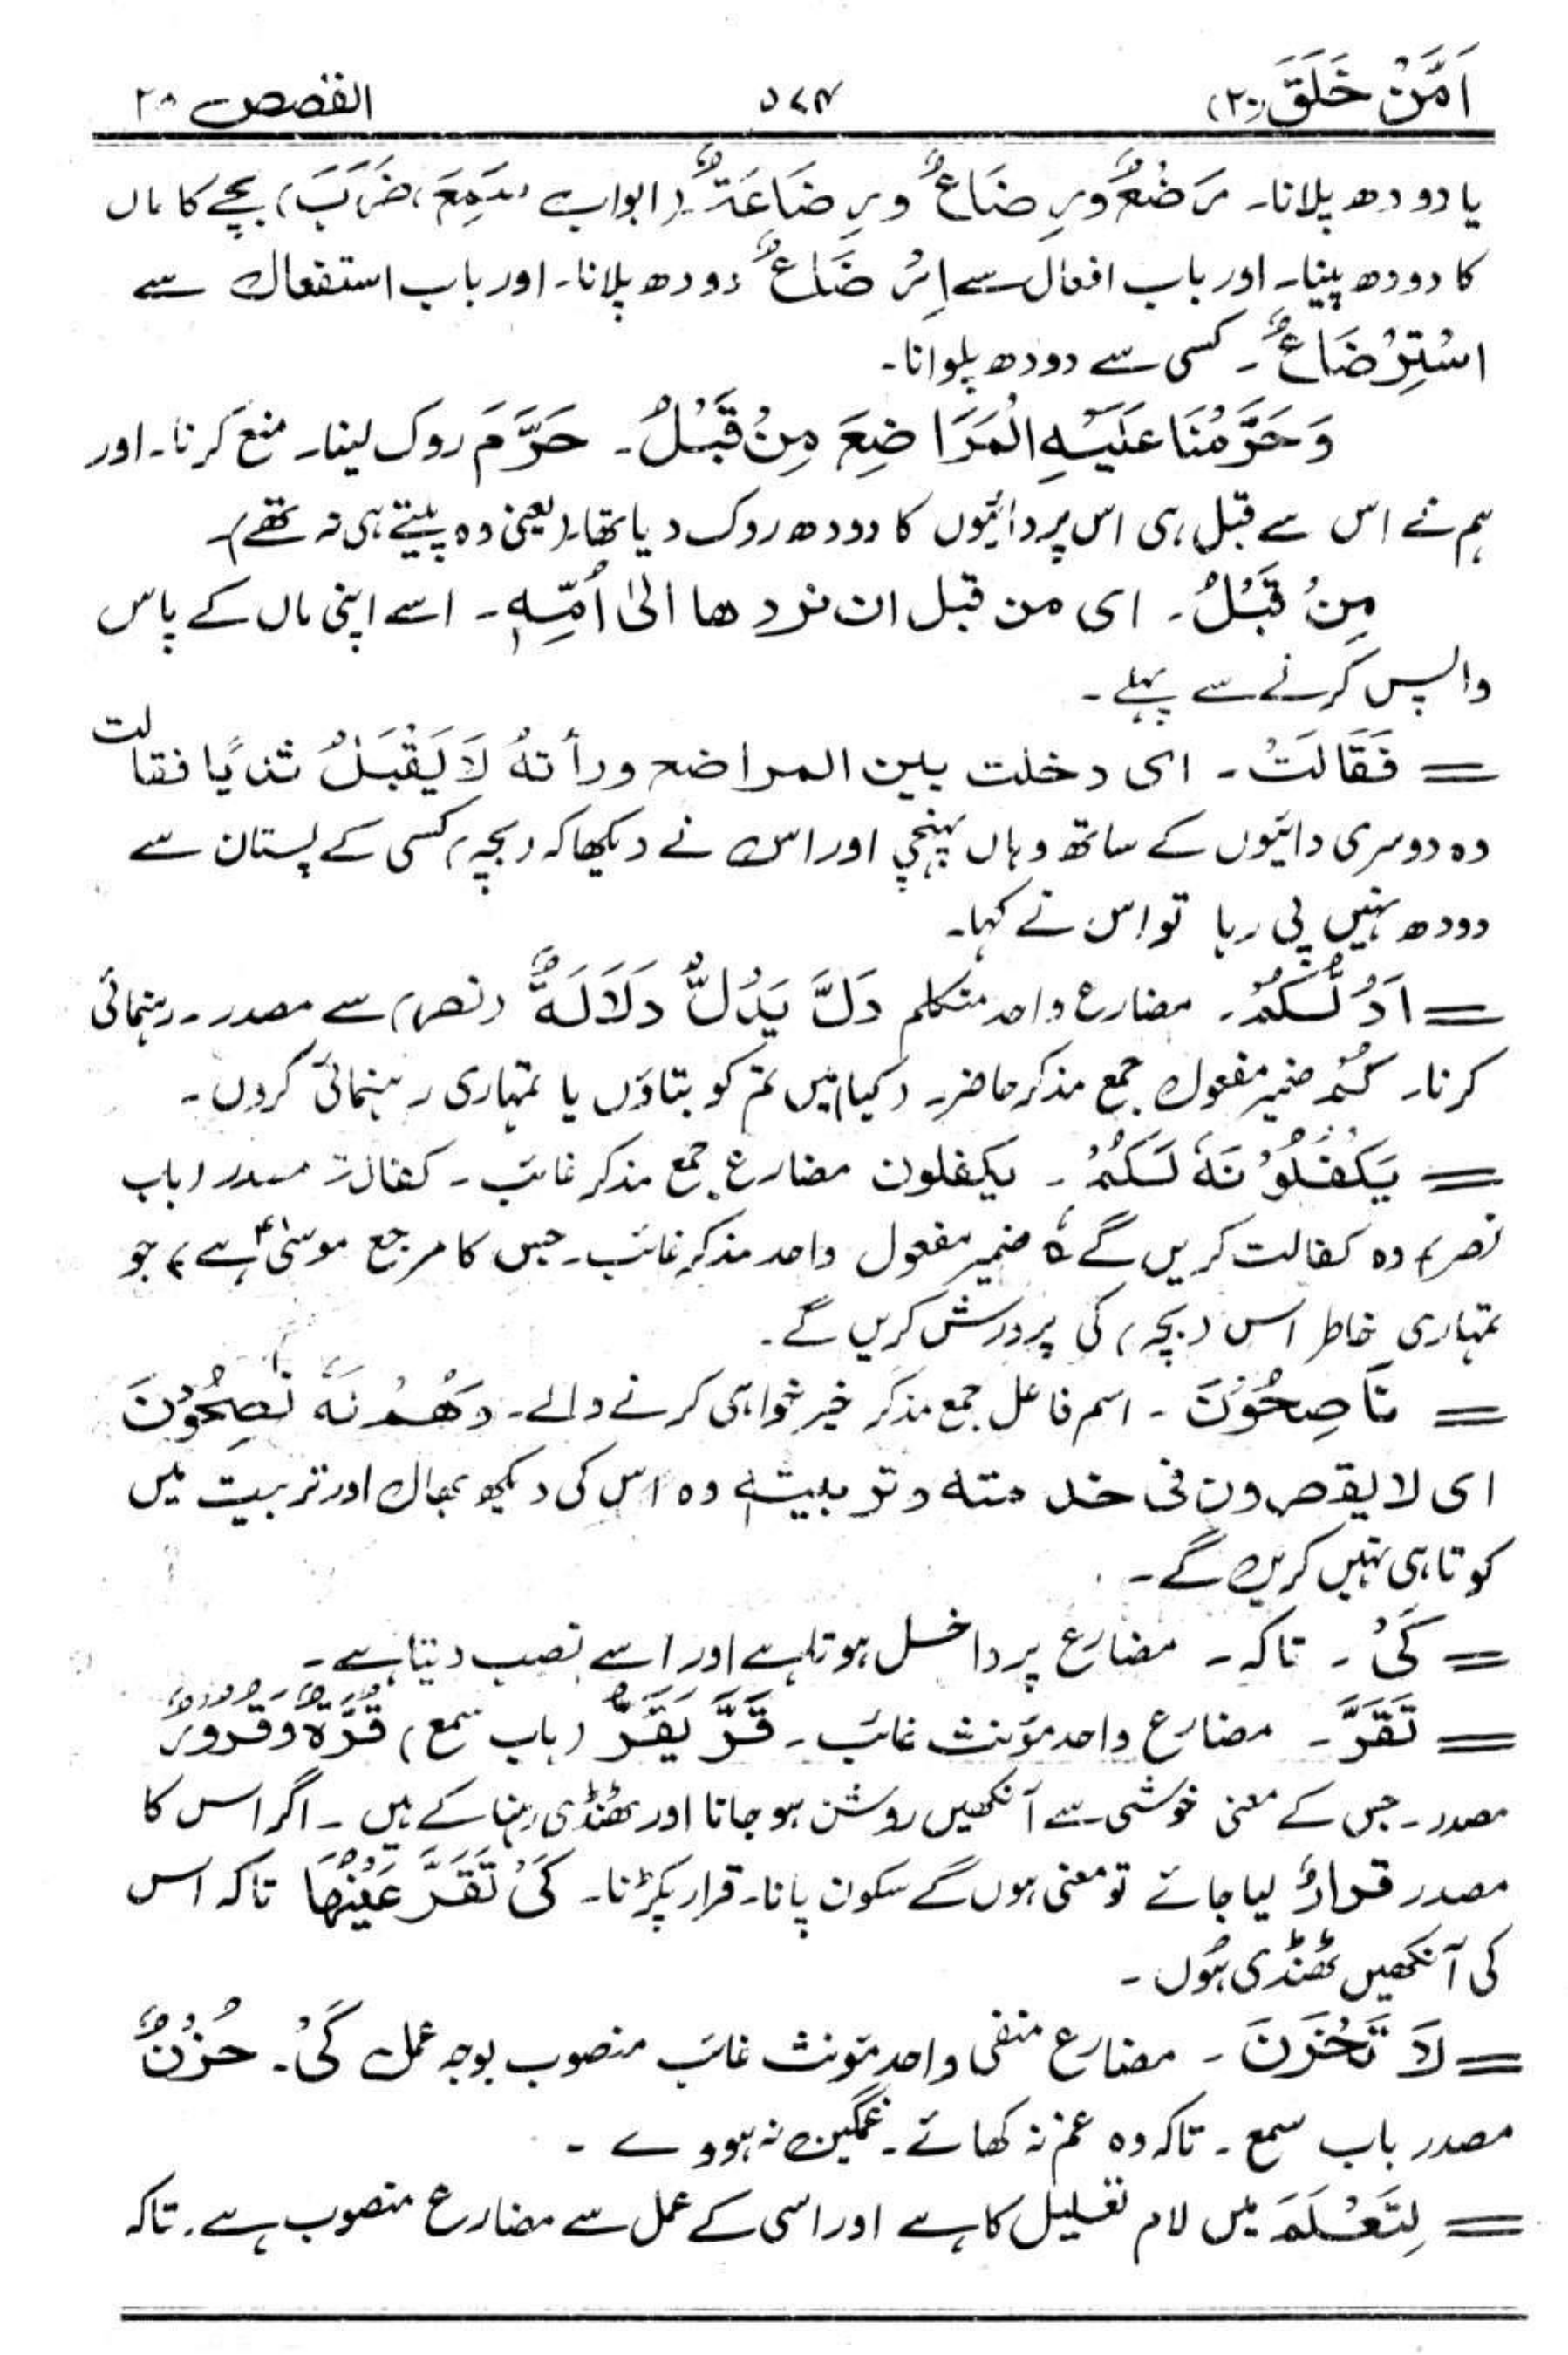 اَمَّنْ خَلَقَ (۲۰) ۵۷۴ القصص ۲۸
یا دودھ پلانا۔ رَضْعٌ و رِضَاعٌ و رِضَاعَۃٌ (ابواب سَمِعَ، ضَرَبَ) بچے کا ماں
کا دودھ پینا۔ اور باب افعال سے اِرْضَاعٌ دودھ پلانا۔ اور باب استفعال سے
اسْتِرْضَاعٌ۔ کسی سے دودھ پلوانا۔
وَحَرَّمْنَا عَلَیْہِ الْمَرَاضِعَ مِنْ قَبْلُ۔ حَرَّمَ روک لینا۔ منع کرنا۔ اور
ہم نے اس سے قبل ہی اس پر دائیوں کا دودھ روک دیا تھا۔ (یعنی وہ پیتے ہی نہ تھے)۔
مِنْ قَبْلُ۔ ای من قبل ان نردھا الیٰ اُمِّہٖ۔ اسے اپنی ماں کے پاس
واپس کرنے سے پہلے۔
= فَقَالَتْ۔ ای دخلت بین المراضع ورأتہُ لَا یَقْبَلُ ثدیًا فقالت
وہ دوسری دائیوں کے ساتھ وہاں پہنچی اور اس نے دیکھا کہ (بچہ) کسی کے پستان سے
دودھ نہیں پی رہا تو اس نے کہا۔
= اَدُلُّکُمْ۔ مضارع واحد متکلم دَلَّ یَدُلُّ دَلَالَۃٌ (نصر) سے مصدر۔ رہنمائی
کرنا۔ کُمْ ضمیر مفعول جمع مذکر حاضر۔ (کیا) میں تم کو بتاؤں یا تمہاری رہنمائی کروں۔
= یَکْفُلُوْنَہٗ لَکُمْ۔ یکفلون مضارع جمع مذکر غائب۔ کفالۃ مصدر (باب
نصر) وہ کفالت کریں گے ہٗ ضمیر مفعول واحد مذکر غائب۔ جس کا مرجع موسیٰؑ ہے) جو
تمہاری خاطر اس (بچہ) کی پرورش کریں گے۔
= نَاصِحُوْنَ۔ اسم فاعل جمع مذکر خیر خواہی کرنے والے۔ وَھُمْ لَہٗ نٰصِحُوْنَ
ای لا یقصرون فی خدمتہ وتربیتہٖ وہ اس کی دیکھ بھال اور تربیت میں
کوتاہی نہیں کریں گے۔
= کَیْ۔ تاکہ۔ مضارع پر داخل ہوتا ہے اور اسے نصب دیتا ہے۔
= تَقَرَّ۔ مضارع واحد مؤنث غائب۔ قَرَّ یَقَرُّ (باب سمع) قُرَّۃٌ وَقُرُوْرٌ
مصدر۔ جس کے معنی خوشی سے آنکھیں روشن ہو جانا اور ٹھنڈی رہنا کے ہیں۔ اگر اس کا
مصدر قرارٌ لیا جائے تو معنی ہوں گے سکون پانا۔ قرار پکڑنا۔ کَیْ تَقَرَّ عَیْنُھَا تاکہ اس
کی آنکھیں ٹھنڈی ہوں۔
= لَا تَحْزَنَ۔ مضارع منفی واحد مؤنث غائب منصوب بوجہ عمل کَیْ۔ حُزْنٌ
مصدر باب سمع۔ تاکہ وہ غم نہ کھائے۔ غمگین نہ ہووے۔
= لِتَعْلَمَ میں لام تعلیل کا ہے اور اسی کے عمل سے مضارع منصوب ہے۔ تاکہ